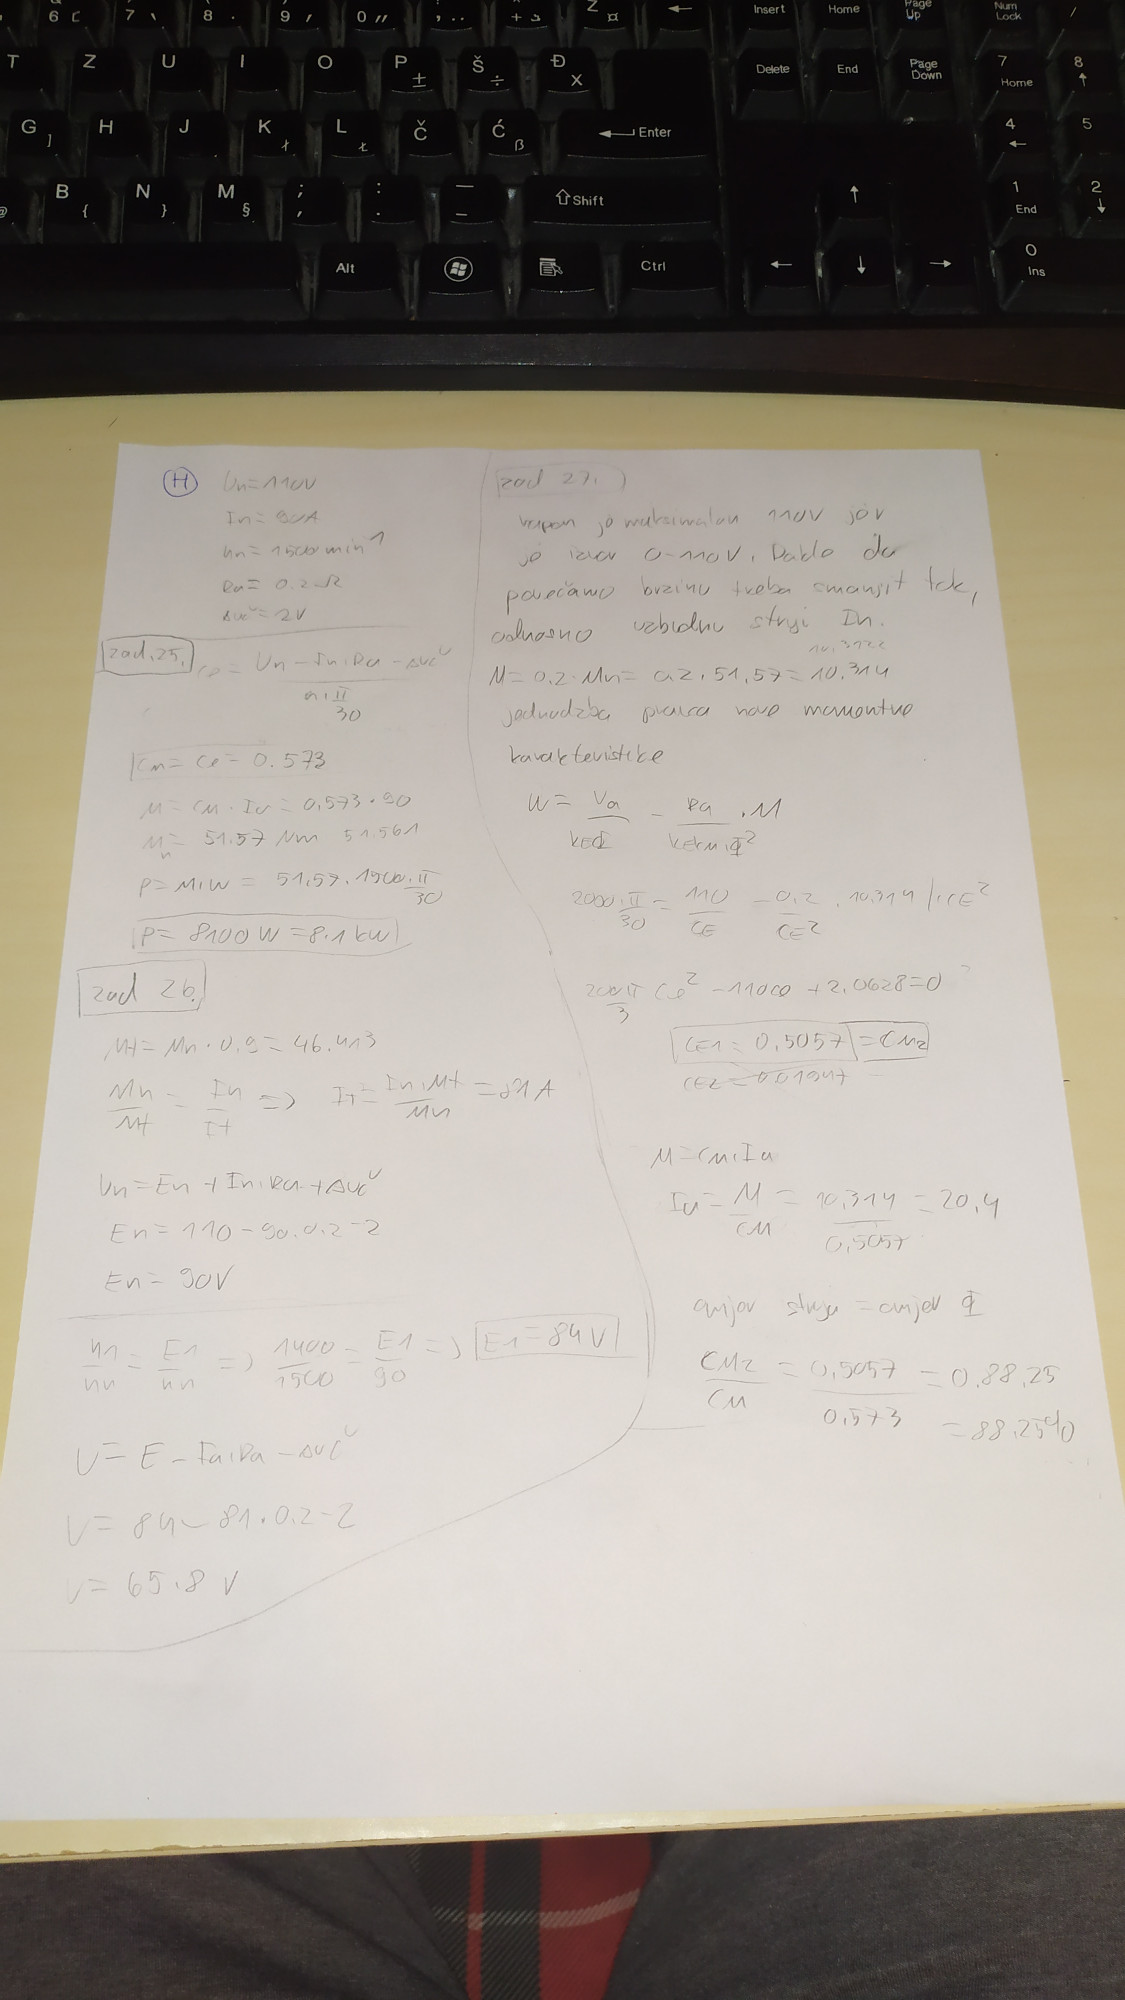 6
7
8
9
0
Z
Insert
Home
Page Up
Num Lock
/
T
Z
U
I
O
P
Š
Đ
Delete
End
Page Down
7 Home
8
G
H
J
K
L
Č
Ć
ß
Enter
4
5
B {
N }
M §
; ,
: .
Shift
1 End
2
Alt
Ctrl
0 Ins
H
Un=110V
In=90A
nn=1500 min⁻¹
Ra=0.2Ω
ΔUč=2V
zad.25.
Ce = (Un-In.Ra-ΔUč)/(n.π/30)
Cm=Ce=0.573
M=Cm.Ia=0,573.90
Mn=51.57 Nm 51.561
P=M.W=51,57.1500.π/30
P=8100W=8.1kW
zad 26.
Mt=Mn.0,9=46.413
Mn/Mt=In/It => It=In.Mt/Mn=81A
Un=En+In.Ra+ΔUč
En=110-90.0.2-2
En=90V
n1/nn=E1/nn => 1400/1500=E1/90 => E1=84V
U=E-Ia.Ra-ΔUč
U=84-81.0.2-2
U=65.8V
zad 27.
napon je maksimalan 110V jer
je izvor 0-110V. Dakle da
povećamo brzinu treba smanjit tok,
odnosno uzbudnu struju
10,3122
M=0.2.Mn=0.2.51,57=10.314
jednadzba pravca nove momentne
karakteristike
W=Ua/keΦ-Ra/kekm.Φ²·M
2000.π/30=110/CE-0.2/CE².10.314/.CE²
200.π/3 Ce²-110Ce+2.0628=0
CE1=0,5057=CM2
CE2=0.01947
M=Cm.Ia
Ia=M/CM=10,314/0,5057=20,4
omjer struje=omjer Φ
CM2/CM=0,5057/0,573=0.88.25
=88.25%